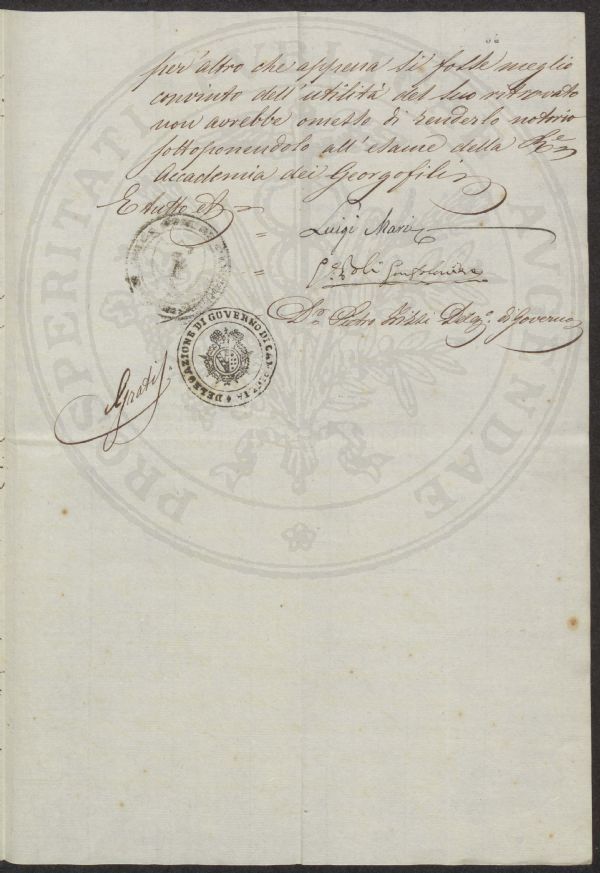 per altro che appena si fosse meglio
convinto dell'utilità del suo ritrovato
non avrebbe omesso di renderlo notorio
sottoponendolo all'esame della Re
Accademia dei Georgofili
E tutto
Luigi Marie
Poli Gonfaloniere
Dr. Pietro Delo. di Governo
DELEGAZIONE DI GOVERNO DI
Gratis
PROSPERITATI PUBLICAE AUGENDAE